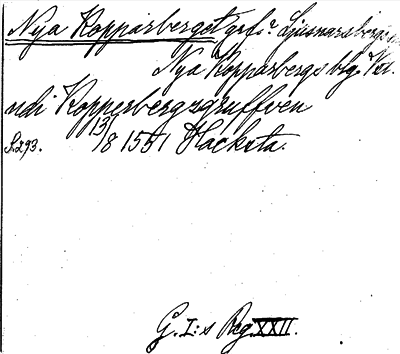 Nya Kopparberget grfr. Ljusnarsbergs sn
Nya Kopparbergs blg. Vtl.
udi Kopperbergzgruffven
S. 293. 13/8 1551 Hacksta.
G. I:s Reg. XXII.